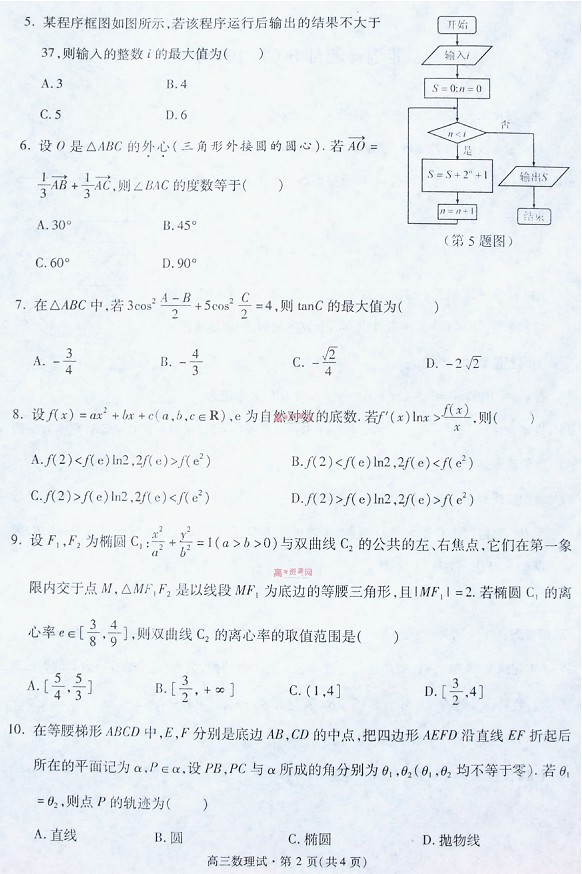 5. 某程序框图如图所示,若该程序运行后输出的结果不大于
37,则输入的整数 i 的最大值为(    )
A.3    B.4
C.5    D.6
开始
输入i
S=0;n=0
n<i
否
是
S=S+2ⁿ+1
输出S
n=n+1
结束
(第5题图)
6. 设 O 是△ABC 的外心(三角形外接圆的圆心). 若 \overrightarrow{AO} =
\frac{1}{3}\overrightarrow{AB} + \frac{1}{3}\overrightarrow{AC},则∠BAC 的度数等于(    )
A.30°    B.45°
C.60°    D.90°
7. 在△ABC 中,若 3cos² \frac{A-B}{2} +5cos² \frac{C}{2} =4,则 tanC 的最大值为(    )
A. -\frac{3}{4}    B. -\frac{4}{3}    C. -\frac{\sqrt{2}}{4}    D. -2\sqrt{2}
8. 设 f(x) =ax² +bx +c(a,b,c∈R),e 为自然对数的底数. 若 f′(x)lnx > \frac{f(x)}{x},则(    )
A.f(2) <f(e)ln2,2f(e) >f(e²)    B.f(2) <f(e)ln2,2f(e) <f(e²)
C.f(2) >f(e)ln2,2f(e) <f(e²)    D.f(2) >f(e)ln2,2f(e) >f(e²)
9. 设 F₁,F₂ 为椭圆 C₁:\frac{x²}{a²} + \frac{y²}{b²} =1(a>b>0)与双曲线 C₂ 的公共的左、右焦点,它们在第一象
高考资源网
限内交于点 M,△MF₁F₂ 是以线段 MF₁ 为底边的等腰三角形,且|MF₁| =2. 若椭圆 C₁ 的离
心率 e∈[\frac{3}{8},\frac{4}{9}],则双曲线 C₂ 的离心率的取值范围是(    )
A.[\frac{5}{4},\frac{5}{3}]    B.[\frac{3}{2}, +∞]    C.(1,4]    D.[\frac{3}{2},4]
10. 在等腰梯形 ABCD 中,E,F 分别是底边 AB,CD 的中点,把四边形 AEFD 沿直线 EF 折起后
所在的平面记为 α,P∈α,设 PB,PC 与 α 所成的角分别为 θ₁,θ₂(θ₁,θ₂ 均不等于零). 若 θ₁
=θ₂,则点 P 的轨迹为(    )
A. 直线    B. 圆    C. 椭圆    D. 抛物线
高三数理试·第 2 页(共4页)